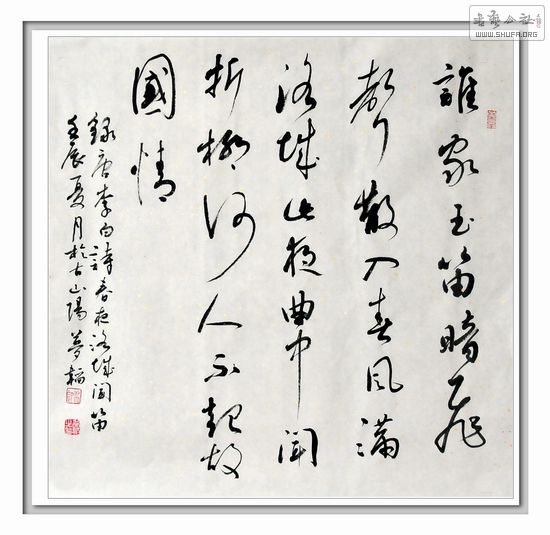 誰家玉笛暗飛
聲散入春風滿
洛城此夜曲中聞
折柳何人不起故
國情
錄唐李白詩春夜洛城聞笛
壬辰夏月於古山陽夢韜
书艺公社
WWW.SHUFA.ORG